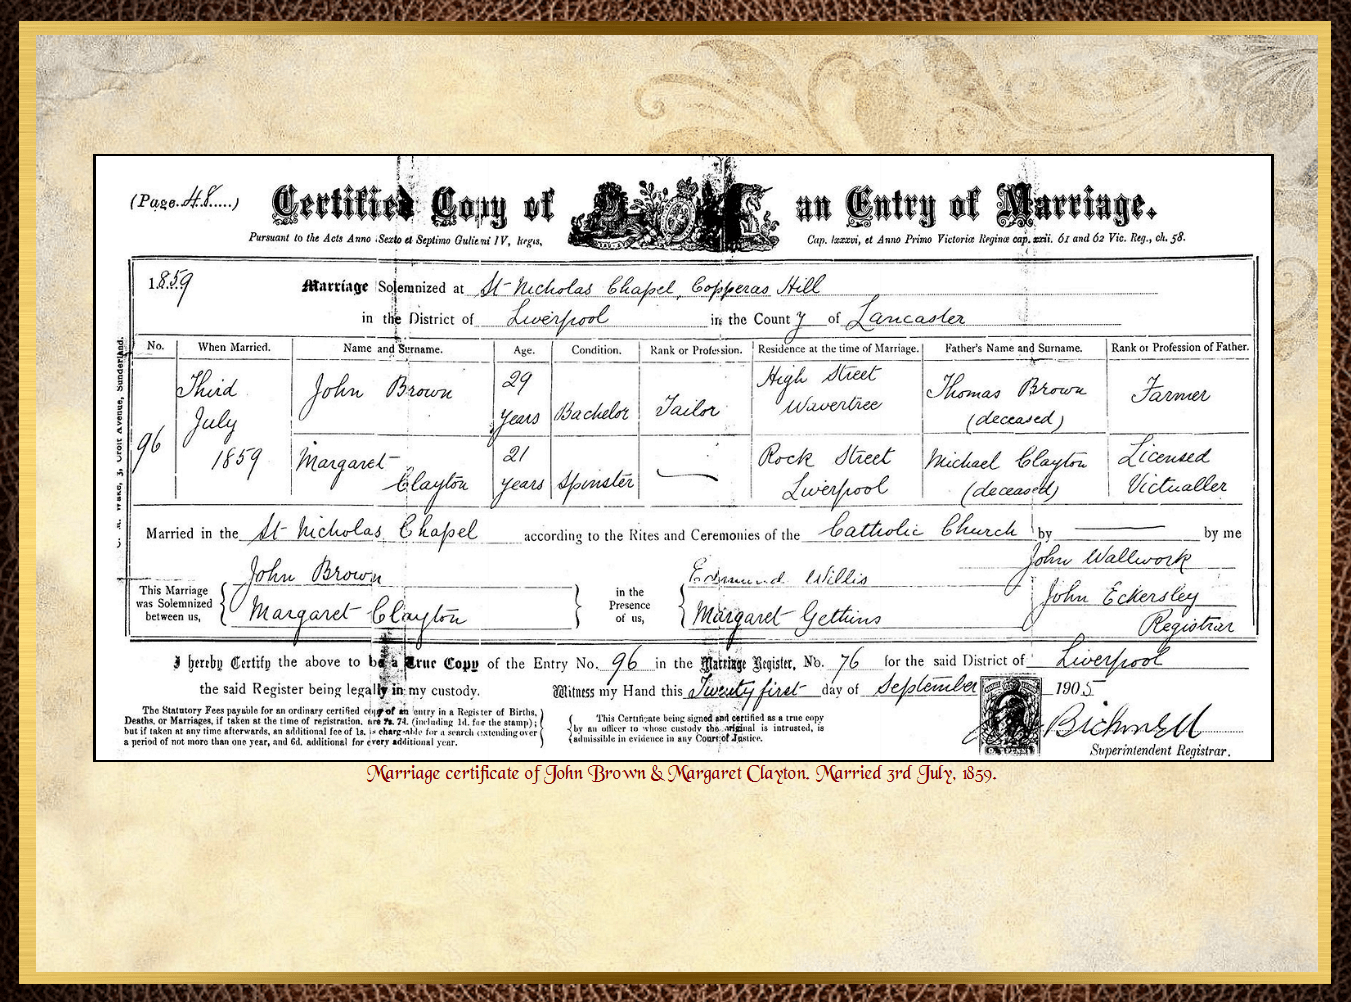 (Page 48)
Certified Copy of an Entry of Marriage.
Pursuant to the Acts Anno Sexto et Septimo Gulielmi IV, Regis, Cap. lxxxvi, et Anno Primo Victoriæ Reginæ cap. xxii. 61 and 62 Vic. Reg., ch. 58.
1859 Marriage Solemnized at St Nicholas Chapel, Copperas Hill
in the District of Liverpool in the County of Lancaster
No. When Married. Name and Surname. Age. Condition. Rank or Profession. Residence at the time of Marriage. Father's Name and Surname. Rank or Profession of Father.
96 Third July 1859 John Brown 29 years Bachelor Tailor High Street Wavertree Thomas Brown (deceased) Farmer
Margaret Clayton 21 years Spinster Rock Street Liverpool Michael Clayton (deceased) Licensed Victualler
Married in the St Nicholas Chapel according to the Rites and Ceremonies of the Catholic Church by by me
This Marriage was Solemnized between us,
John Brown
Margaret Clayton
in the Presence of us,
Edmund Willis
Margaret Gettins
John Wallwork
John Eckersley
Registrar
I hereby Certify the above to be a True Copy of the Entry No. 96 in the Marriage Register, No. 76 for the said District of Liverpool
the said Register being legally in my custody. Witness my Hand this Twenty first day of September 1905
The Statutory Fees payable for an ordinary certified copy of an entry in a Register of Births,
Deaths, or Marriages, if taken at the time of registration, are 2s. 7d. (including 1d. for the stamp);
but if taken at any time afterwards, an additional fee of 1s. is chargeable for a search extending over
a period of not more than one year, and 6d. additional for every additional year.
This Certificate being signed and certified as a true copy
by an officer to whose custody the original is intrusted, is
admissible in evidence in any Court of Justice.
Bicknell
Superintendent Registrar.
Marriage certificate of John Brown & Margaret Clayton. Married 3rd July, 1859.